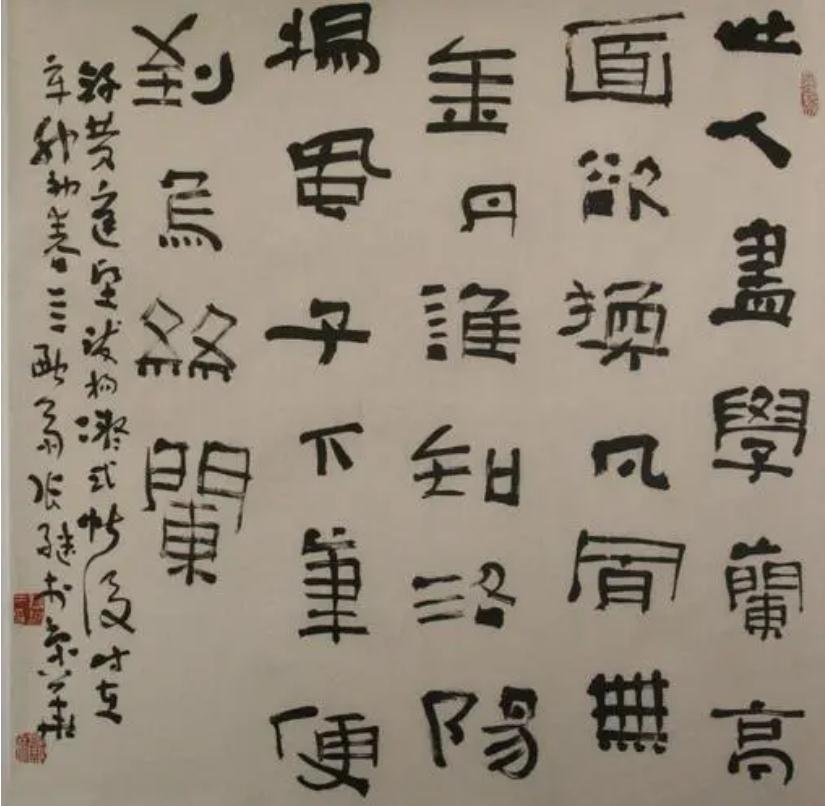 世人盡學蘭亭
面欲換凡骨無
金丹誰知洛陽
楊風子下筆便
到烏絲闌
錄黃庭堅跋楊凝式帖後時在
辛卯初春三翁張繼於京華